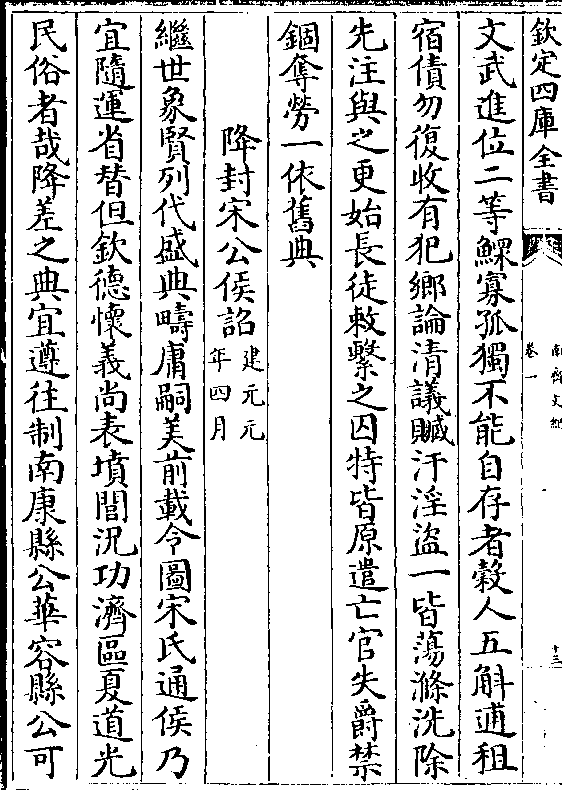 欽定四庫全書
南齊文紀
卷一
十三
文武進位二等鰥寡孤獨不能自存者穀人五斛逋租
宿債勿復收有犯鄉論清議贓汙淫盜一皆蕩滌洗除
先注與之更始長徒敕繫之囚特皆原遣亡官失爵禁
錮奪勞一依舊典
降封宋公侯詔建元元年四月
繼世象賢列代盛典疇庸嗣美前載令圖宋氏通侯乃
宜隨運省替但欽德懷義尚表墳閭況功濟區夏道光
民俗者哉降差之典宜遵往制南康縣公華容縣公可